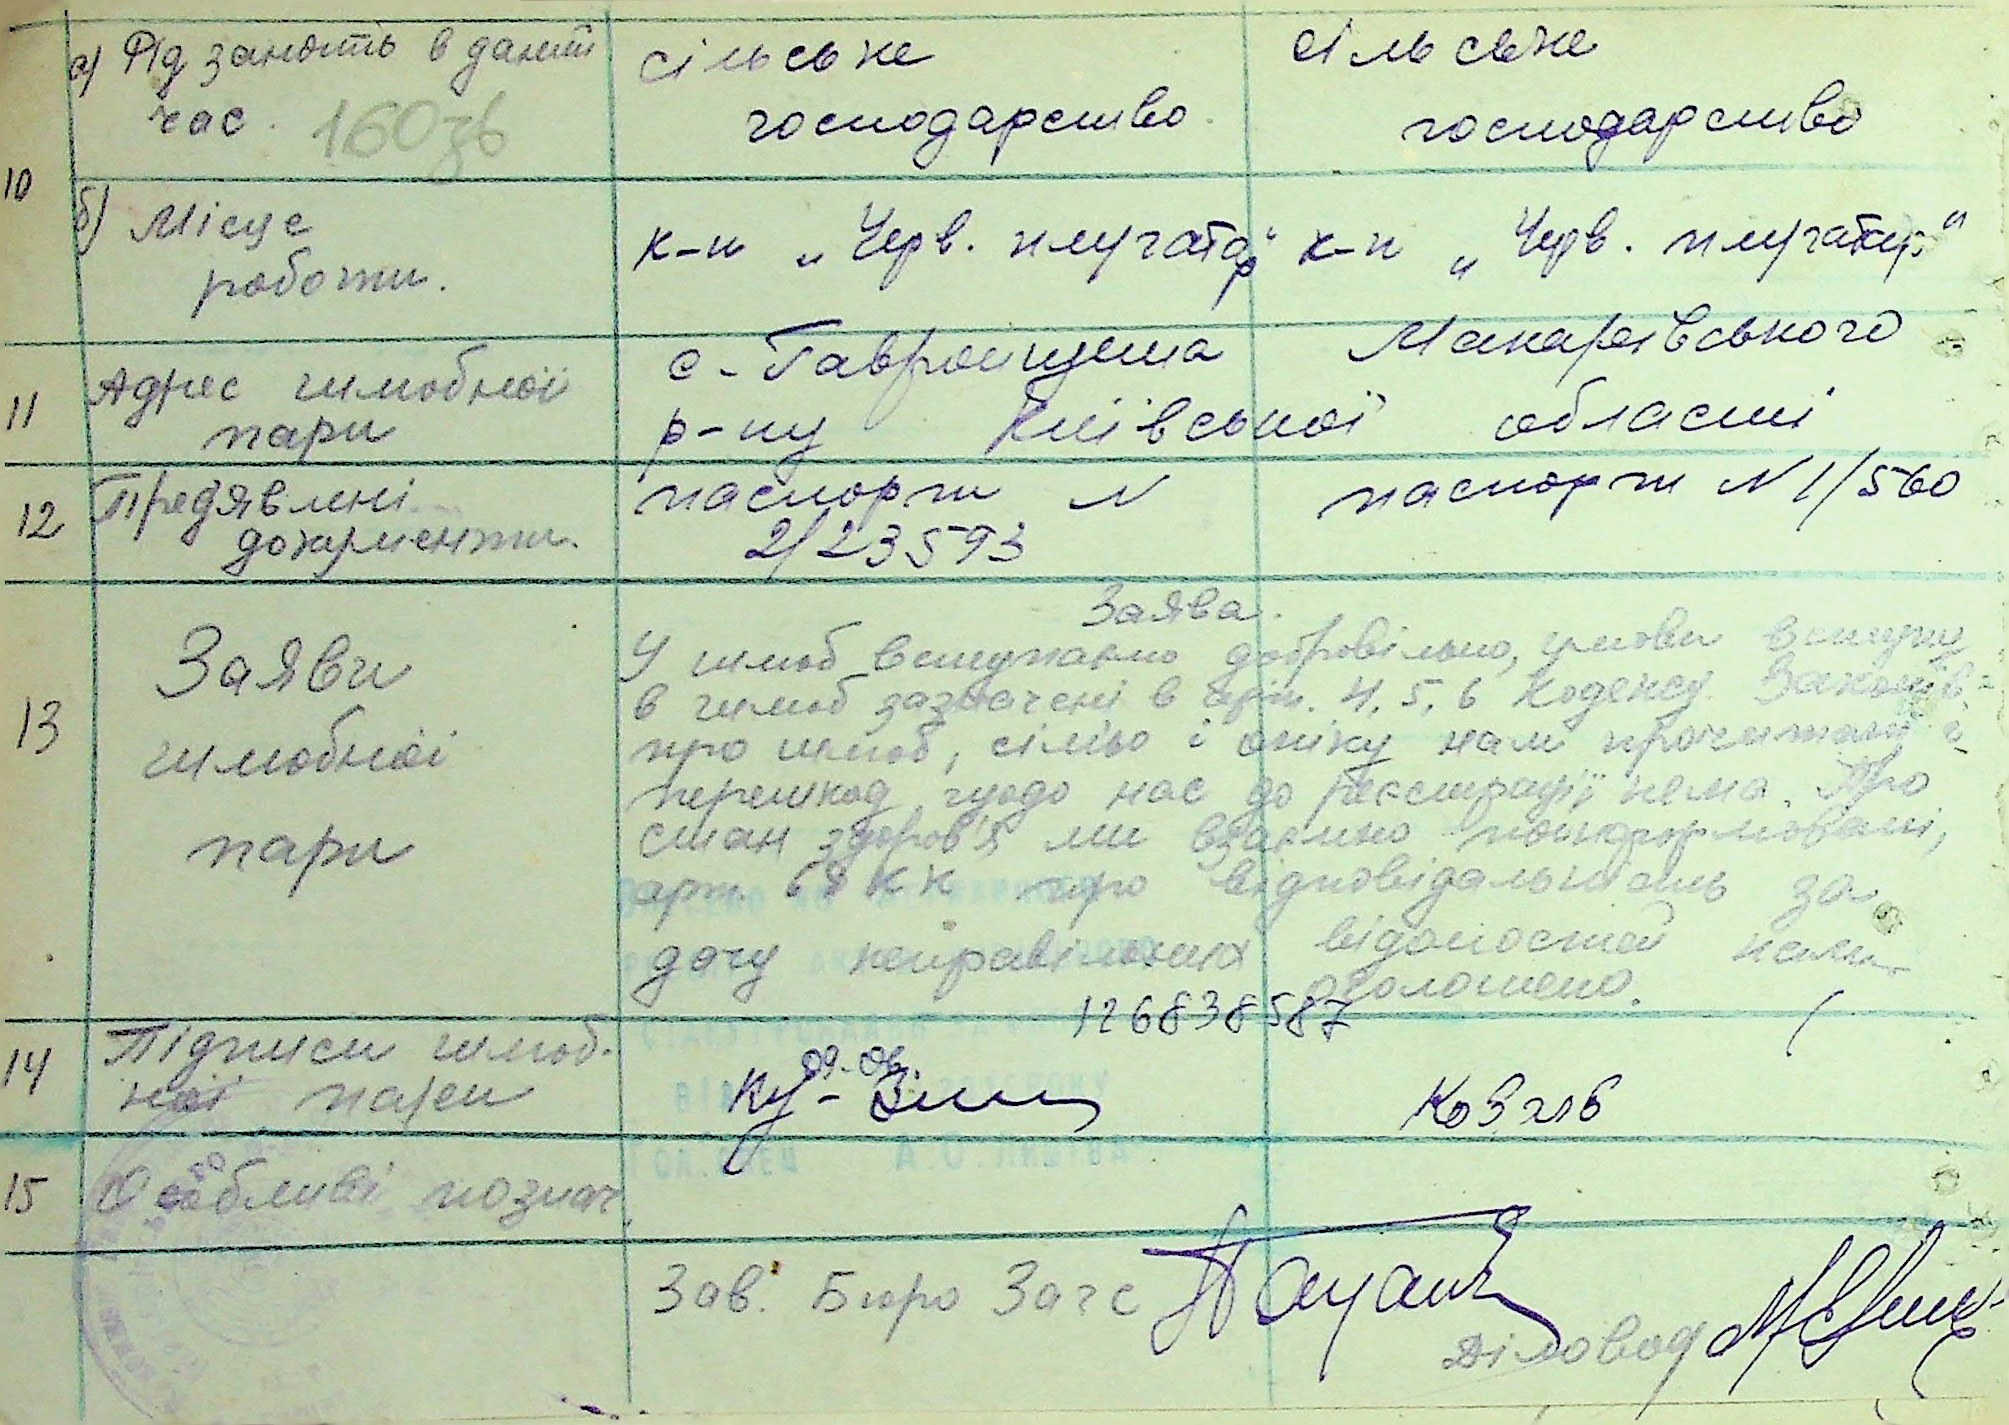 10
а) Рід занять в даний
час. 160зв
сільське
господарство.
сільське
господарство
б) Місце
роботи.
к-п „Черв. плугатар“
к-п „Черв. плугатар“
11
Адрес шлюбної
пари
с-Гавронщина Макарівського
р-ну Київської області
12
Предявлені
документи.
паспорт N
2/23593
паспорт N 1/560
13
Заяви
шлюбної
пари
Заява.
У шлюб вступаємо добровільно, умови вступу
в шлюб зазначені в арт. 4, 5, 6 Кодексу Законів
про шлюб, сімью і опіку нам прочитані і
перешкод щодо нас до реєстрації нема. Про
стан здоров'я ми взаємно поінформовані,
арт. 68 КК про відповідальність за
дачу неправільних відомостей нам
оголошено.
126838587
14
Підписи шлюб-
ної пари
15
Особливі познач.
Зав. Бюро Загс
Діловод